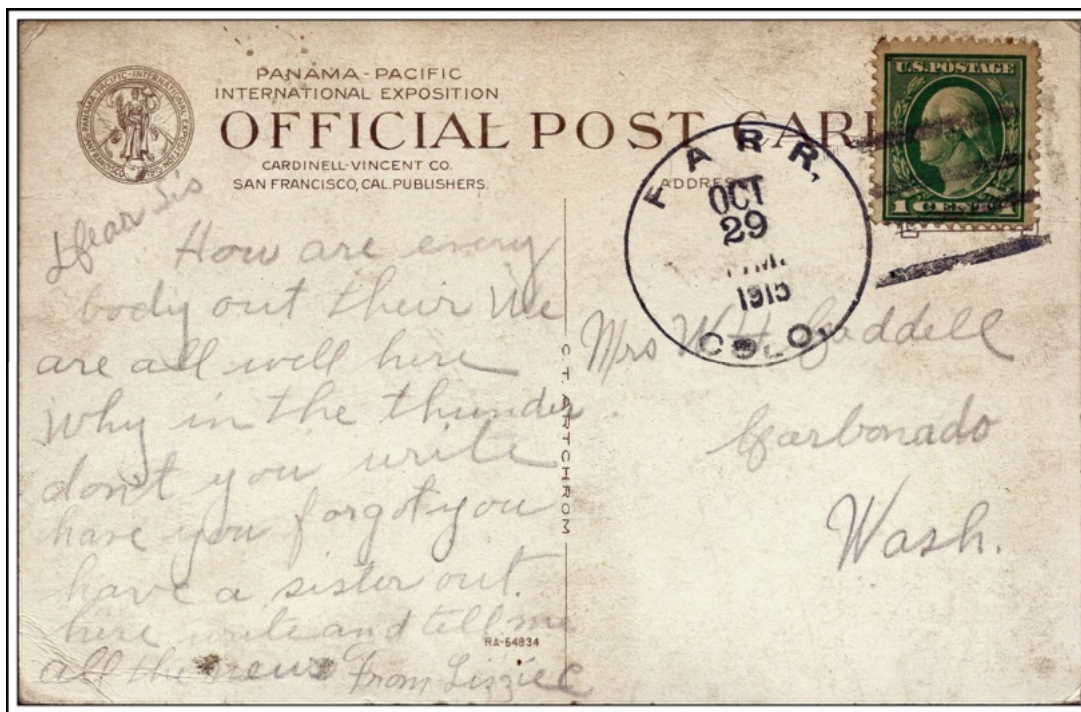 PANAMA-PACIFIC
INTERNATIONAL EXPOSITION
OFFICIAL POST CARD
CARDINELL-VINCENT CO.
SAN FRANCISCO, CAL. PUBLISHERS.
ADDRESS
U.S. POSTAGE
1 CENT 1
FARR,
OCT
29
1915
COLO.
Dear Sis
How are every
body out their We
are all well here
Why in the thunder
don't you write
have you forgot you
have a sister out
here write and tell me
all the news from Lizzie C
CT ARTCHROM
RA-64834
Mrs W.H. Caddell
Carbonado
Wash.